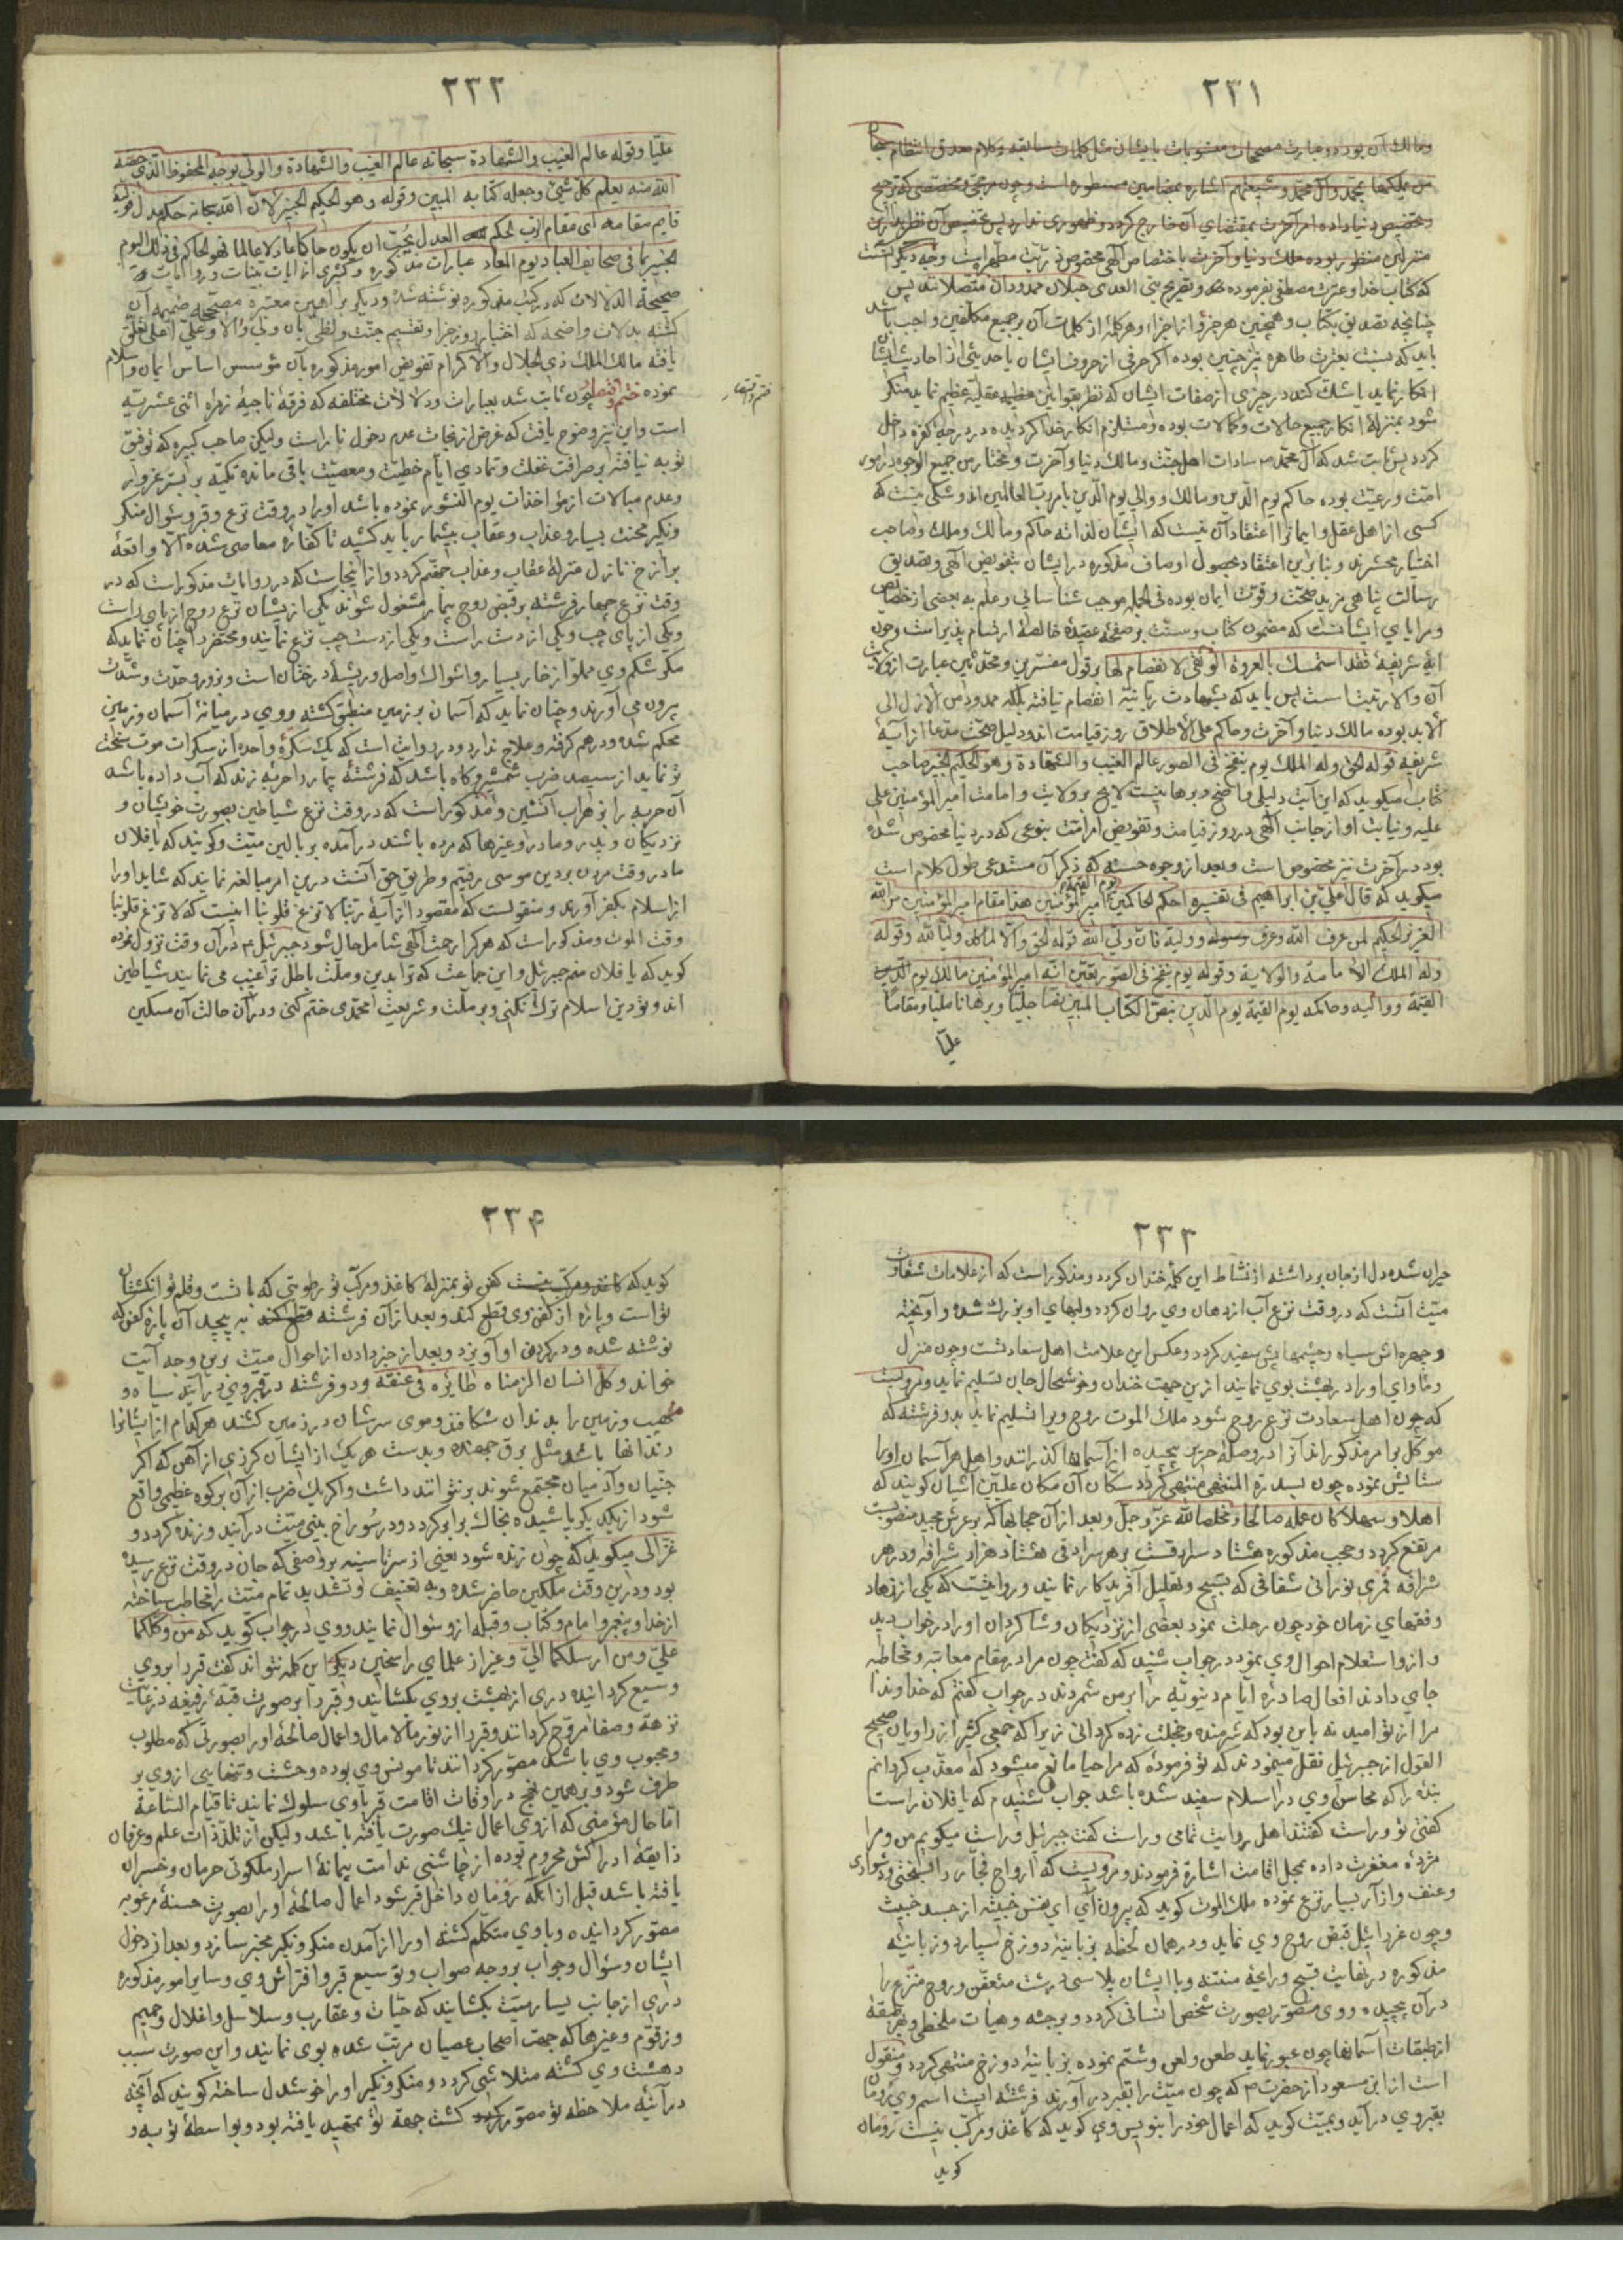 ۲۳۱
ومالك آن بوده وعبارت
من يملكها بمحمد وآل محمد وشيعتهم اشاره بمضامين مسطوره است وچون
منزلين منظور بوده ملك دنيا وآخرت باختصاص آلهى مخصوص ذريت مطهر است وجه ديگر آنست
كه كتاب خدا وعترت مصطفى بفرموده وبتصريح نبى الهدى حبلان ممدودان متصلانند پس
چنانچه تصديق بكتاب وهمچنين هر جزو از اجزاء وهر كلمه از كلمات آن بر جميع مكلفين واجب باشد
بايد كه نسبت بعترت طاهره نيز چنين بوده اكر حرفى از حروف ايشان يا حديثى از احاديث ايشان
انكار نمايد يا شك كند در چيزى از صفات ايشان كه نظر بقوانين عقليه عظيم نمايد منكر
شود بمنزله انكار جميع حالات وكمالات بوده ومستلزم انكار خدا كرديده در درجه كفره داخل
كردد پس ثابت شد كه آل محمد سادات اهل جنت ومالك دنيا وآخرت ومختار من جميع الوجوه در امور
امت ورعيت بوده حاكم يوم الدين ومالك ووالى يوم الدين بامر رب العالمين اند وشكى نيست كه
كسى از اهل عقل وايمانرا اعتقاد آن نيست كه ايشان لذاته حاكم ومالك وملك وصاحب
اختيار محشرند وبنابراين اعتقاد بحصول اوصاف مذكوره در ايشان بتفويض آلهى وتصديق
رسالت پناهى مزيد صحت وقوت ايمان بوده فى الجمله موجب شناسايى وعلم به بعضى از خصايص
ومزاياى ايشانست كه مضمون كتاب وسنت بر صفحه عقيده خالصه ارتسام پذيرامت وچون
ايه شريفه فقد استمسك بالعروة الوثقى لا انفصام لها بر قول مفسرين ومحدثين عبارت از ولايت
آن والا رتبتاست پس بايد كه بشهادت ربانيه انفصام نيافته بلكه ممدود من الازل الى
الابد بوده مالك دنيا وآخرت وحاكم على الاطلاق روز قيامت اند ودليل صحت مدعا از آيه
شريفه قوله الحق وله الملك يوم ينفخ فى الصور عالم الغيب والشهادة وهو الحكيم الخبير صاحب
كتاب ميكويد كه اين آيت دليلى واضح وبرهانيست لايح بر ولايت وامامت امير المؤمنين على
عليه ونيابت او از جانب آلهى در روز قيامت وتفويض امر امت بنوعى كه در دنيا مخصوص شده
بود در آخرت نيز مخصوص است وبعد از وجوه حسنه كه ذكر آن مستدعى طول كلام است
ميكويد كه قال على بن ابراهيم فى تفسيره احكم الحاكمين امير المؤمنين هذا مقام امير المؤمنين من الله
يوم القيمة
العزيز الحكيم لمن عرف الله وعرف رسوله ووليه فان ولى الله قوله الحق
وله الملك الامامة والولاية وقوله يوم ينفخ فى الصور يعنى انه امير المؤمنين مالك يوم الدين
القيمة وواليه وحاكمه يوم القيمة يوم الدين بنص الكتاب المبين نصا جليا وبرهانا مليا ومقاما
عليا
۲۳۲
عليا وقوله عالم الغيب والشهادة سبحانه عالم الغيب والشهادة والولى بوجه المحفوظ الذى خصه
الله منه يعلم كل شئ وجعله كتابه المبين وقوله وهو الحكيم الخبير لان الله سبحانه حكم عدل فوليه
قايم مقامه اى مقام الرب لحكم العدل يجب ان يكون حاكما عادلا عالما فهو الحاكم فى ذلك اليوم
الخبير بما فى صحايف العباد يوم المعاد عبارات مذكوره وكثيرى از ايات بينات وروايات
صحيحة الدلالات كه در كتب مذكوره نوشته شده وديكر براهين معتبره مصححه ضميمه آن
كشته بدلالات واضحه كه اختيار روز جزا وتقسيم جنت ولظى بان ولى والا وعلى اعلى تعلق
يافته مالك الملك ذى الجلال والاكرام تفويض امور مذكوره بآن مؤسس اساس ايمان واسلام
نموده ختم وانتها چون ثابت شد بعبارات ودلالات مختلفه كه فرقه ناجيه زمره اثنى عشريه
ختم وانتها
است واين نيز وضوح يافت كه غرض از نجات عدم دخول نار است وليكن صاحب كبيره كه توفيق
توبه نيافته بر صرافت غفلت وتمادى ايام خطيت ومعصيت باقى مانده تكيه بر بستر غرور
وعدم مبالات از مؤاخذات يوم النشور نموده باشد او را در وقت نزع وقبر وسوال منكر
ونكير محنت بسيار وعذاب وعقاب بيشمار بايد كشيد تا كفاره معاصى شده الا واقعه
برزخ نازل منزله عقاب وعذاب جهنم كردد واز اينجاست كه در روايات مذكور است كه در
وقت نزع چهار فرشته بر قبض روح بيمار مشغول شوند يكى از يشان نزع روح از پاى راست
ويكى از پاى چپ ويكى از دست راست ويكى از دست چپ نزع نمايند ومحتضر را چنان نمايد كه
مكر شكم وى مملو از خار بسيار واشواك واصل وريشه درختان است وبزور وحدت وشدت
بيرون مى آورند وچنان نمايد كه آسمان بر زمين منطبق كشته ووى در ميانه آسمان وزمين
محكم شده ودرهم كرفته وعلاج ندارد ودر روايت است كه يك سكره واحده از سكرات موت سخت
تر نمايد از سيصد ضرب شمشير وكاه باشد كه فرشته بيمار را حربه زند كه آب داده باشد
آن حربه را بزهراب آتشين ومذكور است كه در وقت نزع شياطين بصورت خويشان و
نزديكان وپدر ومادر وغيرها كه مرده باشند درآمده بر بالين ميت وكويند كه يا فلان
ما در وقت مردن بر دين موسى رفتيم وطريق حق آنست درين امر مبالغه نمايند كه شايد او را
از اسلام بكفر آورند ومنقولست كه مقصود از آيه ربنا لا تزغ قلوبنا اينست كه لا تزغ قلوبنا
وقت الموت ومذكور است كه هر كرا رحمت آلهى شامل حال شود جبرئيل در آن وقت نزول نموده
كويد كه يا فلان منم جبرئيل واين جماعت كه ترا بدين وملت باطل ترغيب مى نمايند شياطين
اند وتو دين اسلام ترك نكنى وبر ملت وشريعت محمدى ختم كنى ودر آن حالت آن مسكين
۲۳۳
حيران شده دل از جان برداشته از نشاط اين كلمه خندان كردد ومذكور است كه از علامات شقاوت
ميت آنست كه در وقت نزع آب از دهان وى روان كردد ولبهاى او بزرك شده وآويخته
وچهره اش سياه وچشمهايش سفيد كردد وعكس اين علامت اهل سعادتست وچون منزل
وماواى او را در بهشت بوى نمايند ازين جهت خندان وخوشحال جان تسليم نمايد ومرويست
كه چون اهل سعادت نزع روح شود ملك الموت روح ويرا تسليم نمايد بدو فرشته كه
موكل بر امر مذكور اند آنرا در وصله حرير پيچيده از آسمانها كذرانند واهل هر آسمان او را
ستايش نموده چون بسدرة المنتهى منتهى كردد سكان آن مكان عليين آشيان كويند كه
اهلا وسهلا كان عمله صالحا ومخلصا لله عز وجل وبعد از آن حجابها كه بر عرش مجيد منصوبست
مرتفع كردد وحجب مذكوره هشتاد سرادقست بر هر سرادقى هشتاد هزار شرافه ودر هر
شرافه قمرى نورانى شفافى كه تسبيح وتهليل افريدكار نمايند وروايتست كه يكى از زهاد
وفقهاى زمان خود چون رحلت نمود بعضى از نزديكان وشاكردان او را در خواب ديد
وازو استعلام احوال وى نمود در جواب شنيد كه كفت چون مرا در مقام معاتبه ومخاطبه
جاى دادند افعال صادره ايام دنيويه را بر من شمردند در جواب كفتم كه خداوندا
مرا از تو اميد نه باين بود كه شرمنده وخجلت زده كردانى زيرا كه جمعى كثير از راويان صحيح
القول از جبرئيل نقل مينمودند كه تو فرموده كه مرا حيا مانع ميشود كه معذب كردانم
بنده را كه محاسن وى در اسلام سفيد شده باشد جواب شنيدم كه يا فلان راست
كفتى تو وراست كفتند اهل روايت تمامى وراست كفت جبرئيل وراست ميكويم من ومرا
مژده مغفرت داده بمحل اقامت اشارة فرمودند ومرويست كه ارواح فجار را بسختى ودشوارى
وعنف وآزار بسيار نزع نموده ملك الموت كويد كه بيرون آى اى نفس خبيثه از جسد خبيث
وچون عزرائيل قبض روح وى نمايد ودر همان لحظه بزبانيه دوزخ سپارد وزبانيه
مذكوره در نهايت قبيح ورايحه منتنه وبا ايشان پلاسى درشت متعفن وروح منزع را
در آن پيچيده ووى متصور بصورت شخص انسانى كردد وبر جثه وهيات ملخ وبهر طبقه
از طبقات آسمانها چون عبور نمايد طعن ولعن وشتم نموده بزبانيه دوزخ منتهى كردد ومنقول
است از ابن مسعود از حضرت كه چون ميت را بقبر در آورند فرشته ايست اسم وى رومان
بقبر وى درآيد وبميت كويد كه اعمال خود را بنويس وى كويد كه كاغذ ومركب نيست رومان
كويد
۲۳۴
كويد كه كفن تو بمنزله كاغذ ومركب تو رطوبتى كه با تست وقلم تو انكشتان
تواست وپاره از كفن وى قطع كند وبعد از آن فرشته به پيچد آن پاره كفن كه
نوشته شده ودر كردن او آويزد وبعد از خبر دادن از احوال ميت برين وجه آيت
خواند وكل انسان الزمناه طايره فى عنقه ودو فرشته در قبر وى درآيند سياه و
مهيب وزمين را بدندان شكافند وموى سرشان در زمين كشند هر كدام از ايشانرا
دندانها باشد مثل برق جهنده وبدست هر يك از ايشان كرزى از آهن كه اكر
جنيان وآدميان مجتمع شوند بر نتوانند داشت واكر يك ضرب از آن بر كوه عظيمى واقع
شود از يكديكر پاشيده بخاك برابر كردد ودر سوراخ بينى ميت درآيند وزنده كردد و
غزالى ميكويد كه چون زنده شود يعنى از سر تا سينه بر وصفى كه جان در وقت نزع رسيده
بود ودرين وقت ملكين حاضر شده وبه تعنيف وتشديد تمام ميت را مخاطب ساخته
از خدا وپيغمبر وامام وكتاب وقبله ازو سؤال نمايند ووى در جواب كويد كه من وكلكما
على ومن ارسلكما الى وغير از علماى راسخين ديكرى اين كلمه نتواند كفت قبر را بر وى
وسيع كردانيده درى از بهشت بر وى بكشايند وقبر را بر صورت قبه رفيعه
نزهة وصفا مروح كردانند وقبر را از نور مالامال واعمال صالحه او را بصورتى كه مطلوب
ومحبوب وى باشد مصور كردانند تا مونس وى بوده وحشت وتنهايى از وى بر
طرف شود وبر همين نهج در اوقات اقامت قبر با وى سلوك نمايند تا قيام الساعة
اما حال مؤمنى كه از وى اعمال نيك صورت يافته باشد وليكن از تلذذات علم وعرفان
ذايقه ادراكش محروم بوده از چاشنى ندامت پيمانه اسرار ملكوتى حرمان وخسران
يافته باشد قبل از انكه رومان داخل قبر شود اعمال صالحه او را بصورت حسنه مرغوبه
مصور كردانيده وبا وى متكلم كشته او را از آمدن منكر ونكير مخبر سازد وبعد از دخول
ايشان وسؤال وجواب بر وجه صواب وتوسيع قبر وافتراش وى وساير امور مذكوره
درى از جانب يسار ميت بكشايند كه حيات وعقارب وسلاسل واغلال وحميم
وزقوم وغيرها كه جهت اصحاب عصيان مرتب شده بوى نمايند واين صورت سبب
دهشت وى كشته متلاشى كردد ومنكر ونكير او را خوشدل ساخته كويند كه آنچه
در آئينه ملاحظه تو مصور كشت جهة تو تمهيد يافته بود وبواسطه توبه و